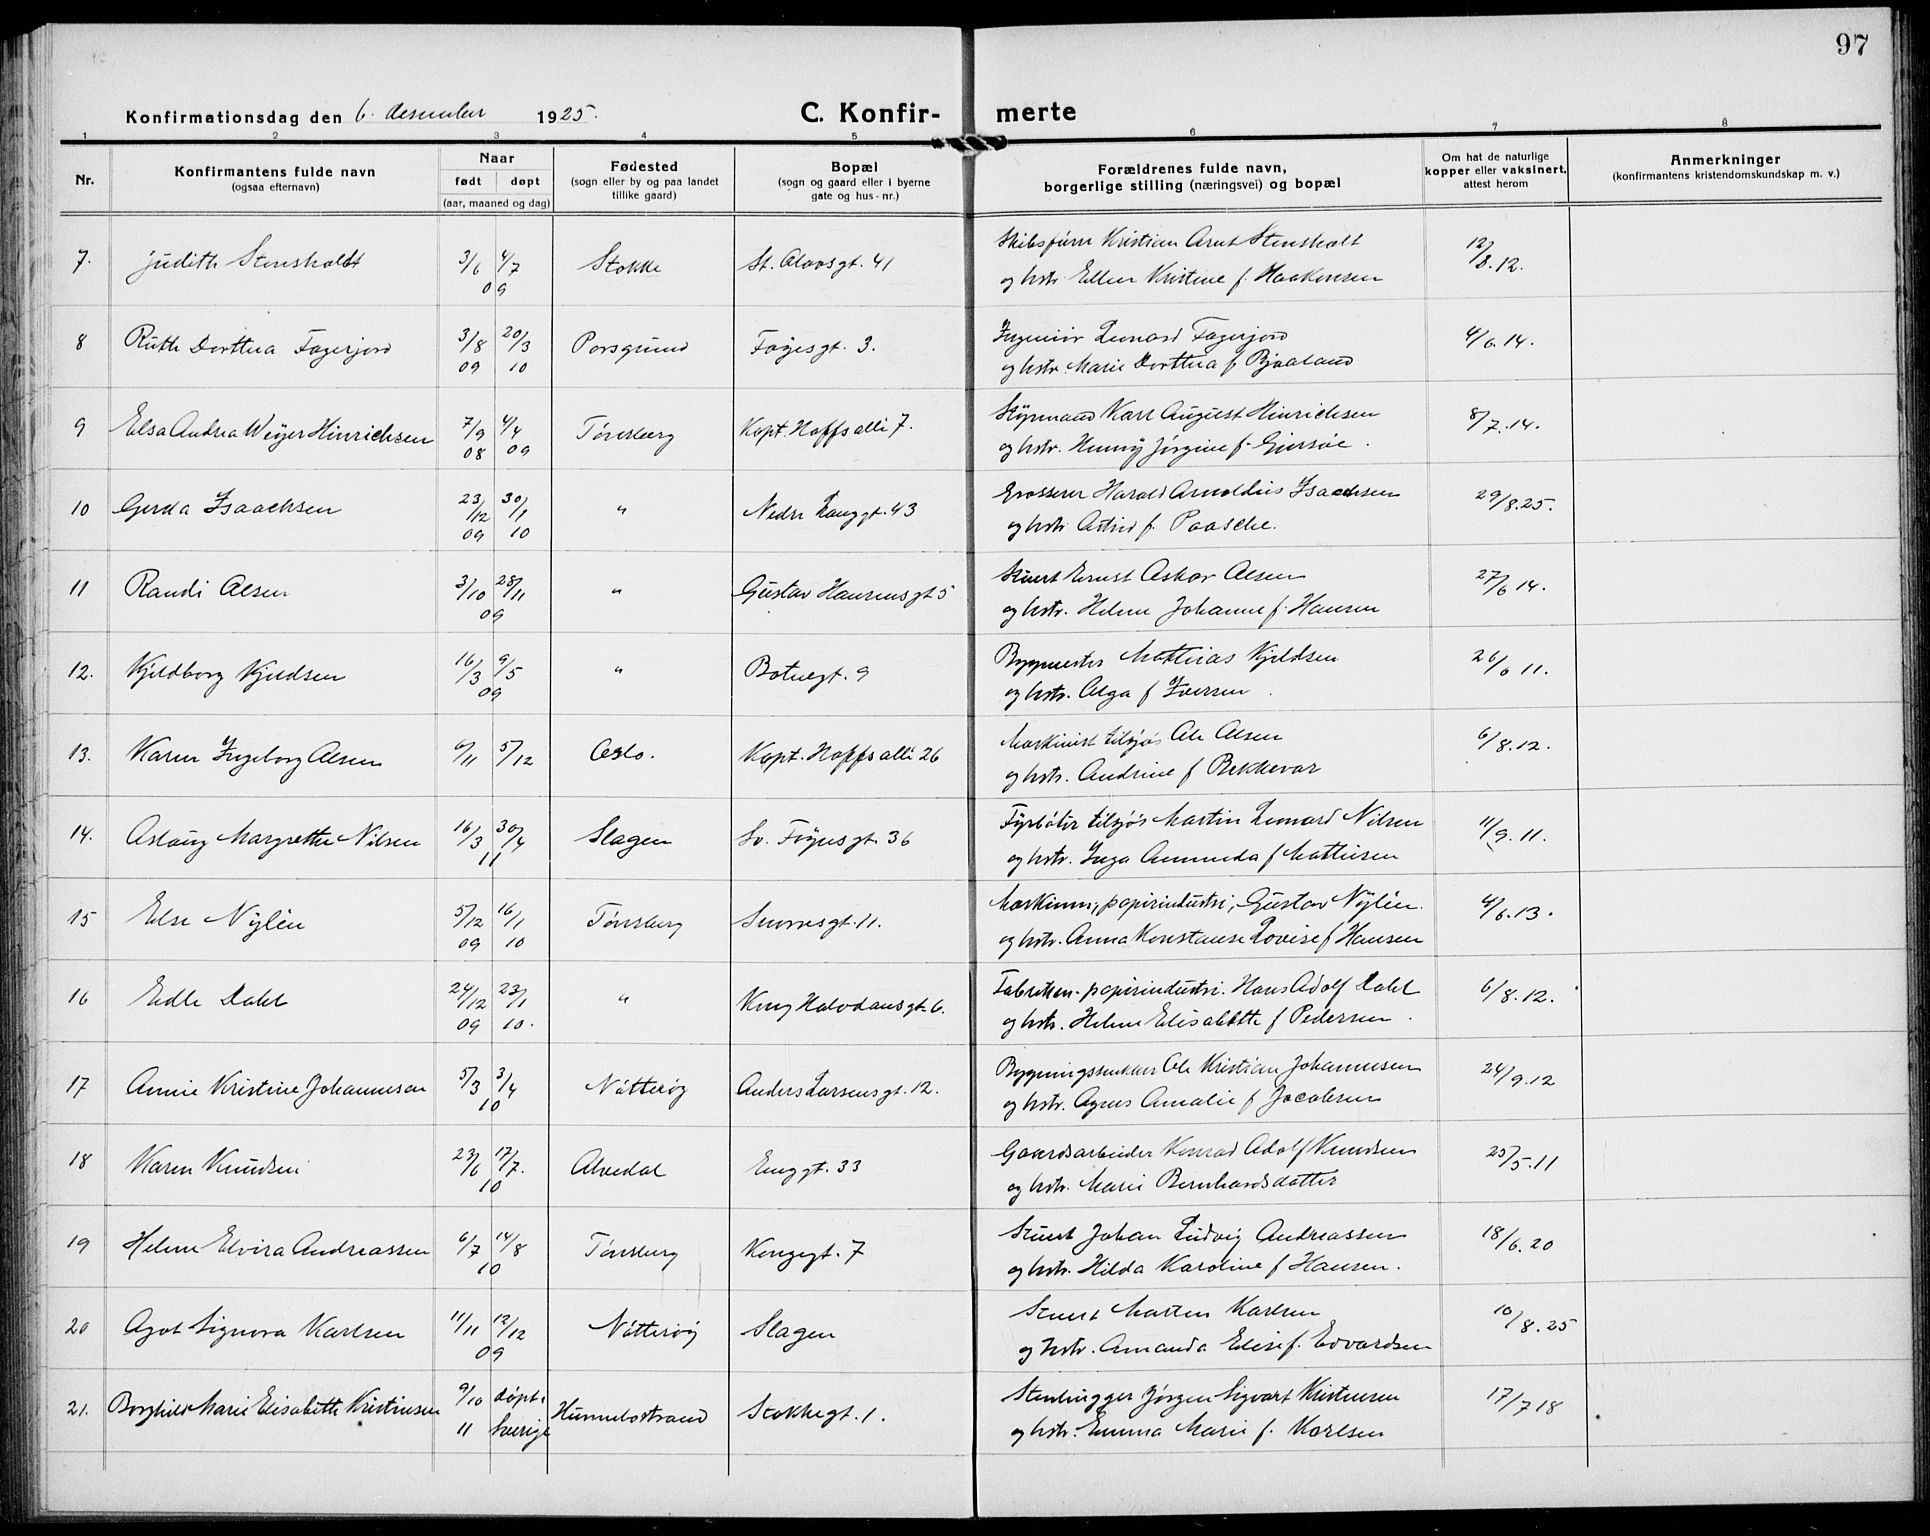 97
Konfirmationsdag den 6. desember 1925.
C. Konfir-
merte
1 2 3 4 5 6 7 8
Nr.
Konfirmantens fulde navn
(ogsaa efternavn)
Naar
født døpt
(aar, maaned og dag)
Fødested
(sogn eller by og paa landet
tillike gaard)
Bopæl
(sogn og gaard eller i byerne
gate og hus-nr.)
Forældrenes fulde navn,
borgerlige stilling (næringsvei) og bopæl
Om hat de naturlige
kopper eller vaksinert,
attest herom
Anmerkninger
(konfirmantens kristendomskundskap m. v.)
7. Judith Stensholdt 3/6 4/7 09 Stokke St. Olavsgt. 41
Skibsfører Kristian Arnt Stensholt 12/8.12.
og hstr. Ellen Kristine f. Haakensen
8 Ruth Dorthea Fagerjord 3/8 09 20/3 10 Porsgrund Føyesgt. 3.
Ingeniør Leonard Fagerjord 4/6.14.
og hstr. Marie Dorthea f Bjaaland
9 Elsa Andrea Weyer Hinrichsen 7/9 08 4/4 09 Tønsberg Kapt. Hoffs alle 7.
Styrmand Karl August Hinrichsen 8/7.14.
og hstr. Henny Jørgine f. Giersøe.
10 Gerda Isaachsen 23/12 09 30/1 10 " Nedre Langgt. 43
Grosserer Harald Arnoldus Isaachsen 29/8.25.
og hstr Astrid f. Paasche.
11 Randi Olsen 3/10 28/11 09 " Gustav Hansensgt 5
Stuert Ernst Oskar Olsen 27/6 14.
og hstr. Helene Johanne f. Hansen
12. Kjeldborg Kjeldsen 16/3 9/5 09 " Botnegt. 9
Byggmester Mathias Kjeldsen 26/6 11.
og hstr. Olga f Iversen.
13. Karen Ingeborg Olsen 6/11 5/12 Oslo. Kapt. Hoffs alle 26
Maskinist tilsjøs Ole Olsen 6/8.12.
og hstr. Andrine f Bekkevar
14. Aslaug Margrethe Nilsen 16/3 30/4 11 Slagen Sv. Føynsgt. 36
Fyrbøter tilsjøs Martin Leonard Nilsen 11/9.11.
og hstr. Inga Amunda f Mathisen
15 Else Nylén 5/12 09 16/1 10 Tønsberg Snorresgt. 11.
papirindustri, Gustav Nylén. 4/6.13.
og hstr. Anna Konstanse Lovise f Hansen
16 Edle Dahl 24/12 09 23/1 10. " Kong Halvdansgt. 6.
papirindustri. Hans Adolf Dahl 6/8.12.
og hstr. Helene Elisabeth f Pedersen.
17 Annie Kristine Johannesen 5/3 3/4 10 Nøtterøy Anders Larsensgt. 12.
Bygningssnekker Ole Kristian Johannesen 24/9.12
og hstr. Agnes Amalie f Jacobsen
18 Karen Knudsen 23/6 17/7. 10 Alvdal Enggt. 33
Gaardsarbeider Konrad Adolf Knudsen 25/5.11
og hstr. Marie Bernhardsdatter
19 Helene Elvira Andreassen 6/7 14/8 10 Tønsberg Kongegt. 7
Stuert Johan Ludvig Andreassen 18/6.20
og hstr. Hilda Karoline f Hansen.
20 Agot Signora Karlsen 11/11 12/12 09 Nøtterøy Slagen
Stuert Marten Karlsen 10/8.25
og hstr. Amanda Elise f. Edvardsen
21. Borghild Marie Elisabeth Kristensen 9/10 11 døpt i Sverige Hunnebostrand Stokkegt. 1.
Stenhugger Jørgen Sigvart Kristensen 17/7 18
og hstr. Emma Marie f. Karlsen